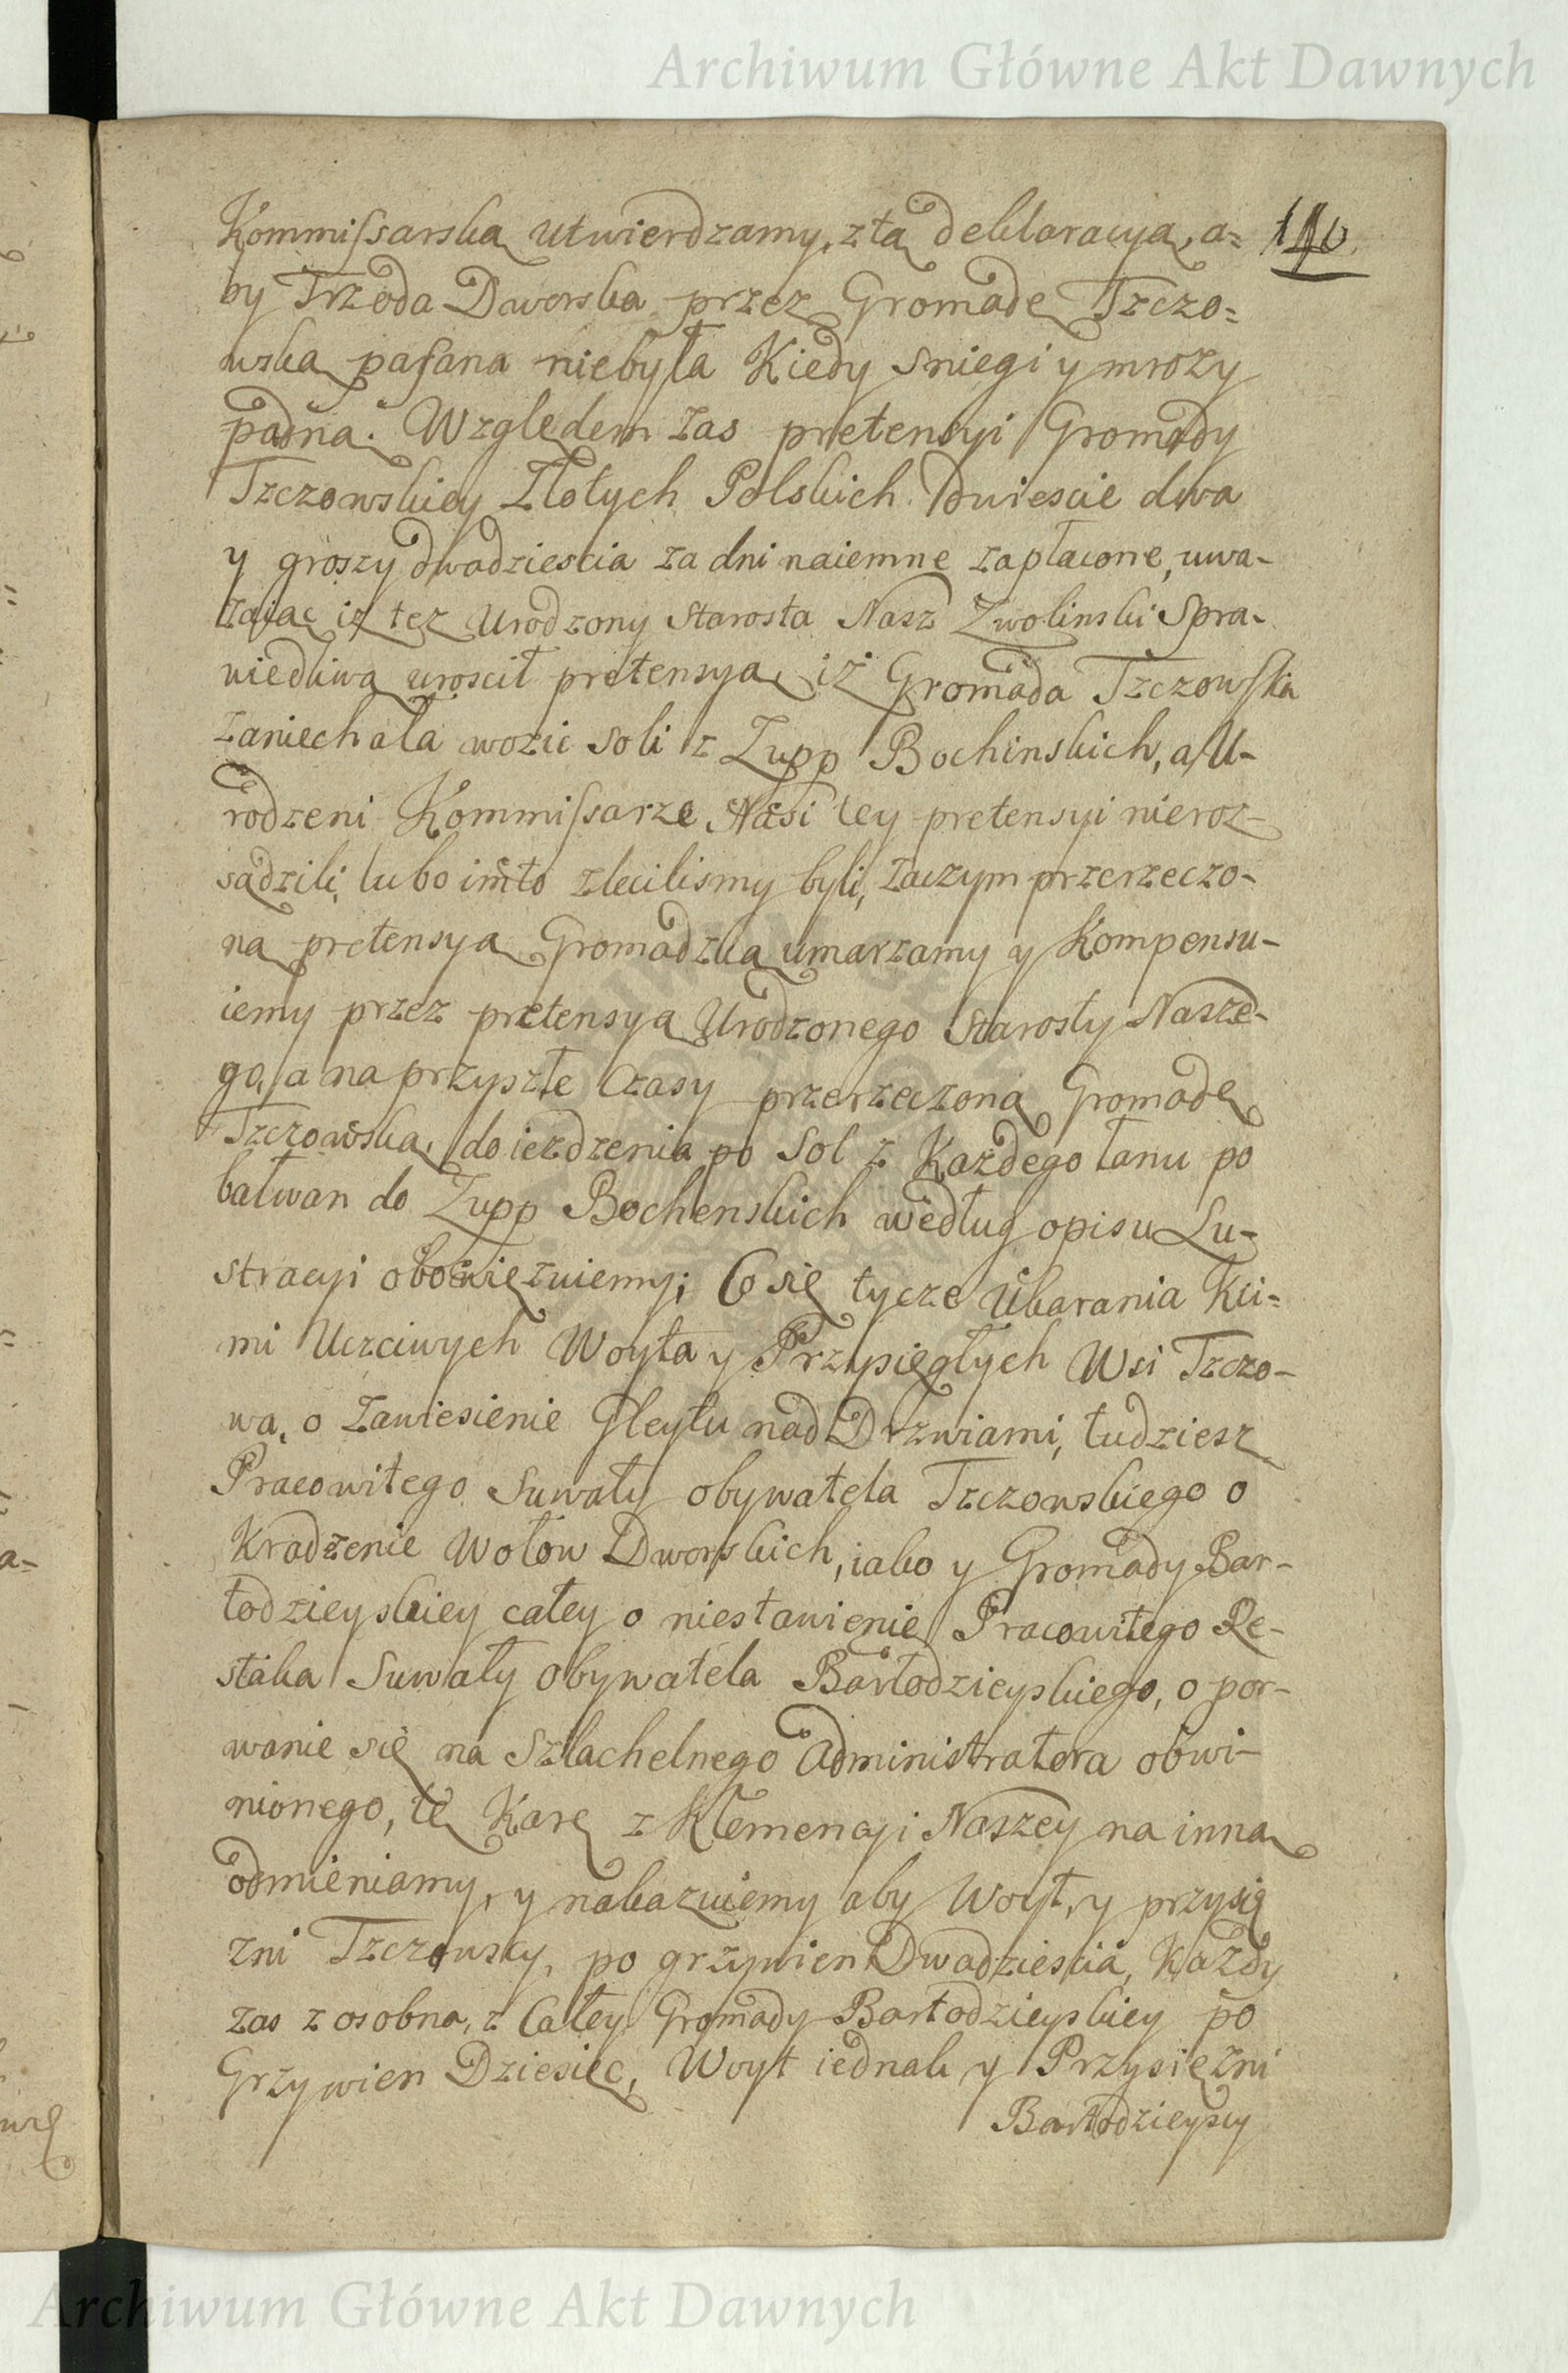 Archiwum Główne Akt Dawnych
Kommissarską utwierdzamy, z tą deklaracyą, a=
by Trzoda Dworska przez Gromadę Tczczo=
wską pasana niebyła Kiedy sniegi y mrozy
padną. Względem zas pretensyi Gromady
Tczczowskiey Złotych Polskich Dwiescie dwa
y groszy dwadziescia za dni naiemne zapłacone, uwa-
zaiąc iż też Urodzony Starosta Nasz Zwolinski Spra-
wiedliwą uroscił pretensyą, iż Gromada Tczczowska
zaniechała wozic soli z Zupp Bochinskich, a U-
rodzeni Kommissarze Nasi tey pretensyi nieroz-
sądzili, lubo im to zlecilismy byli, zaczym przerzeczo-
ną pretensyą Gromadzką umarzamy y Kompensu-
iemy przez pretensyą Urodzonego Starosty Nasze-
go, a na przyszłe Czasy przerzeczoną Gromadę
Tczczowską, do iezdzenia po Sol z Każdego łanu po
bałwan do Zupp Bochenskich według opisu Lu-
stracyi obowięzuiemy; Co się tycze Ukarania Kii=
mi Uczciwych Woyta y Przysięgłych Wsi Tczczo-
wa, o zawiesienie Gleytu nad Drzwiami, tudziesz
Pracowitego Suwały obywatela Tczczowskiego o
Kradzenie Wołow Dworskich, iako y Gromady Bar-
todzieyskiey całey o niestawienie Pracowitego Re-
staka Suwały obywatela Bartodzieyskiego, o por-
wanie się na Szlachetnego Administratora obwi-
nionego, tę Karę z Klemencyi Naszey na inną
odmieniamy, y nakazuiemy aby Woyt, y przysię
zni Tczczowscy, po grzywien Dwadziescia, Każdy
zas z osobna, z Całey Gromady Bartodzieyskiey po
Grzywien Dziesięc, Woyt iednak y Przysiężni
Bartodzieyscy
Archiwum Główne Akt Dawnych